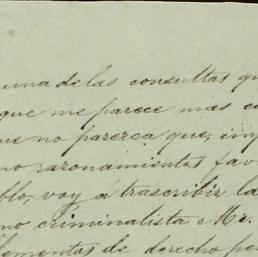 una de las consultas qu
que me parece mas co
ue no parezca que, inf
no razonamientos fav
blo, voy á trascribir la
no criminalista Mr.
lementos de derecho pe